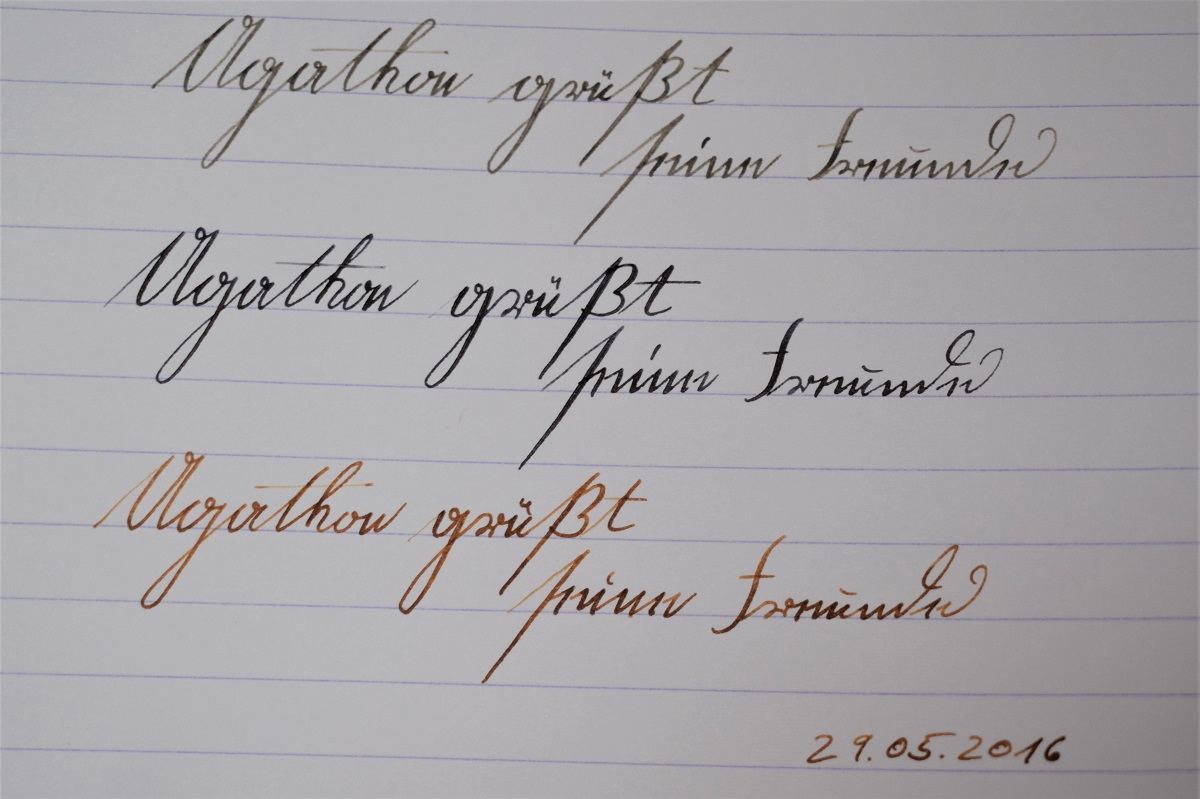 Agathon grüßt
seine Freunde
Agathon grüßt
seine Freunde
Agathon grüßt
seine Freunde
29.05.2016